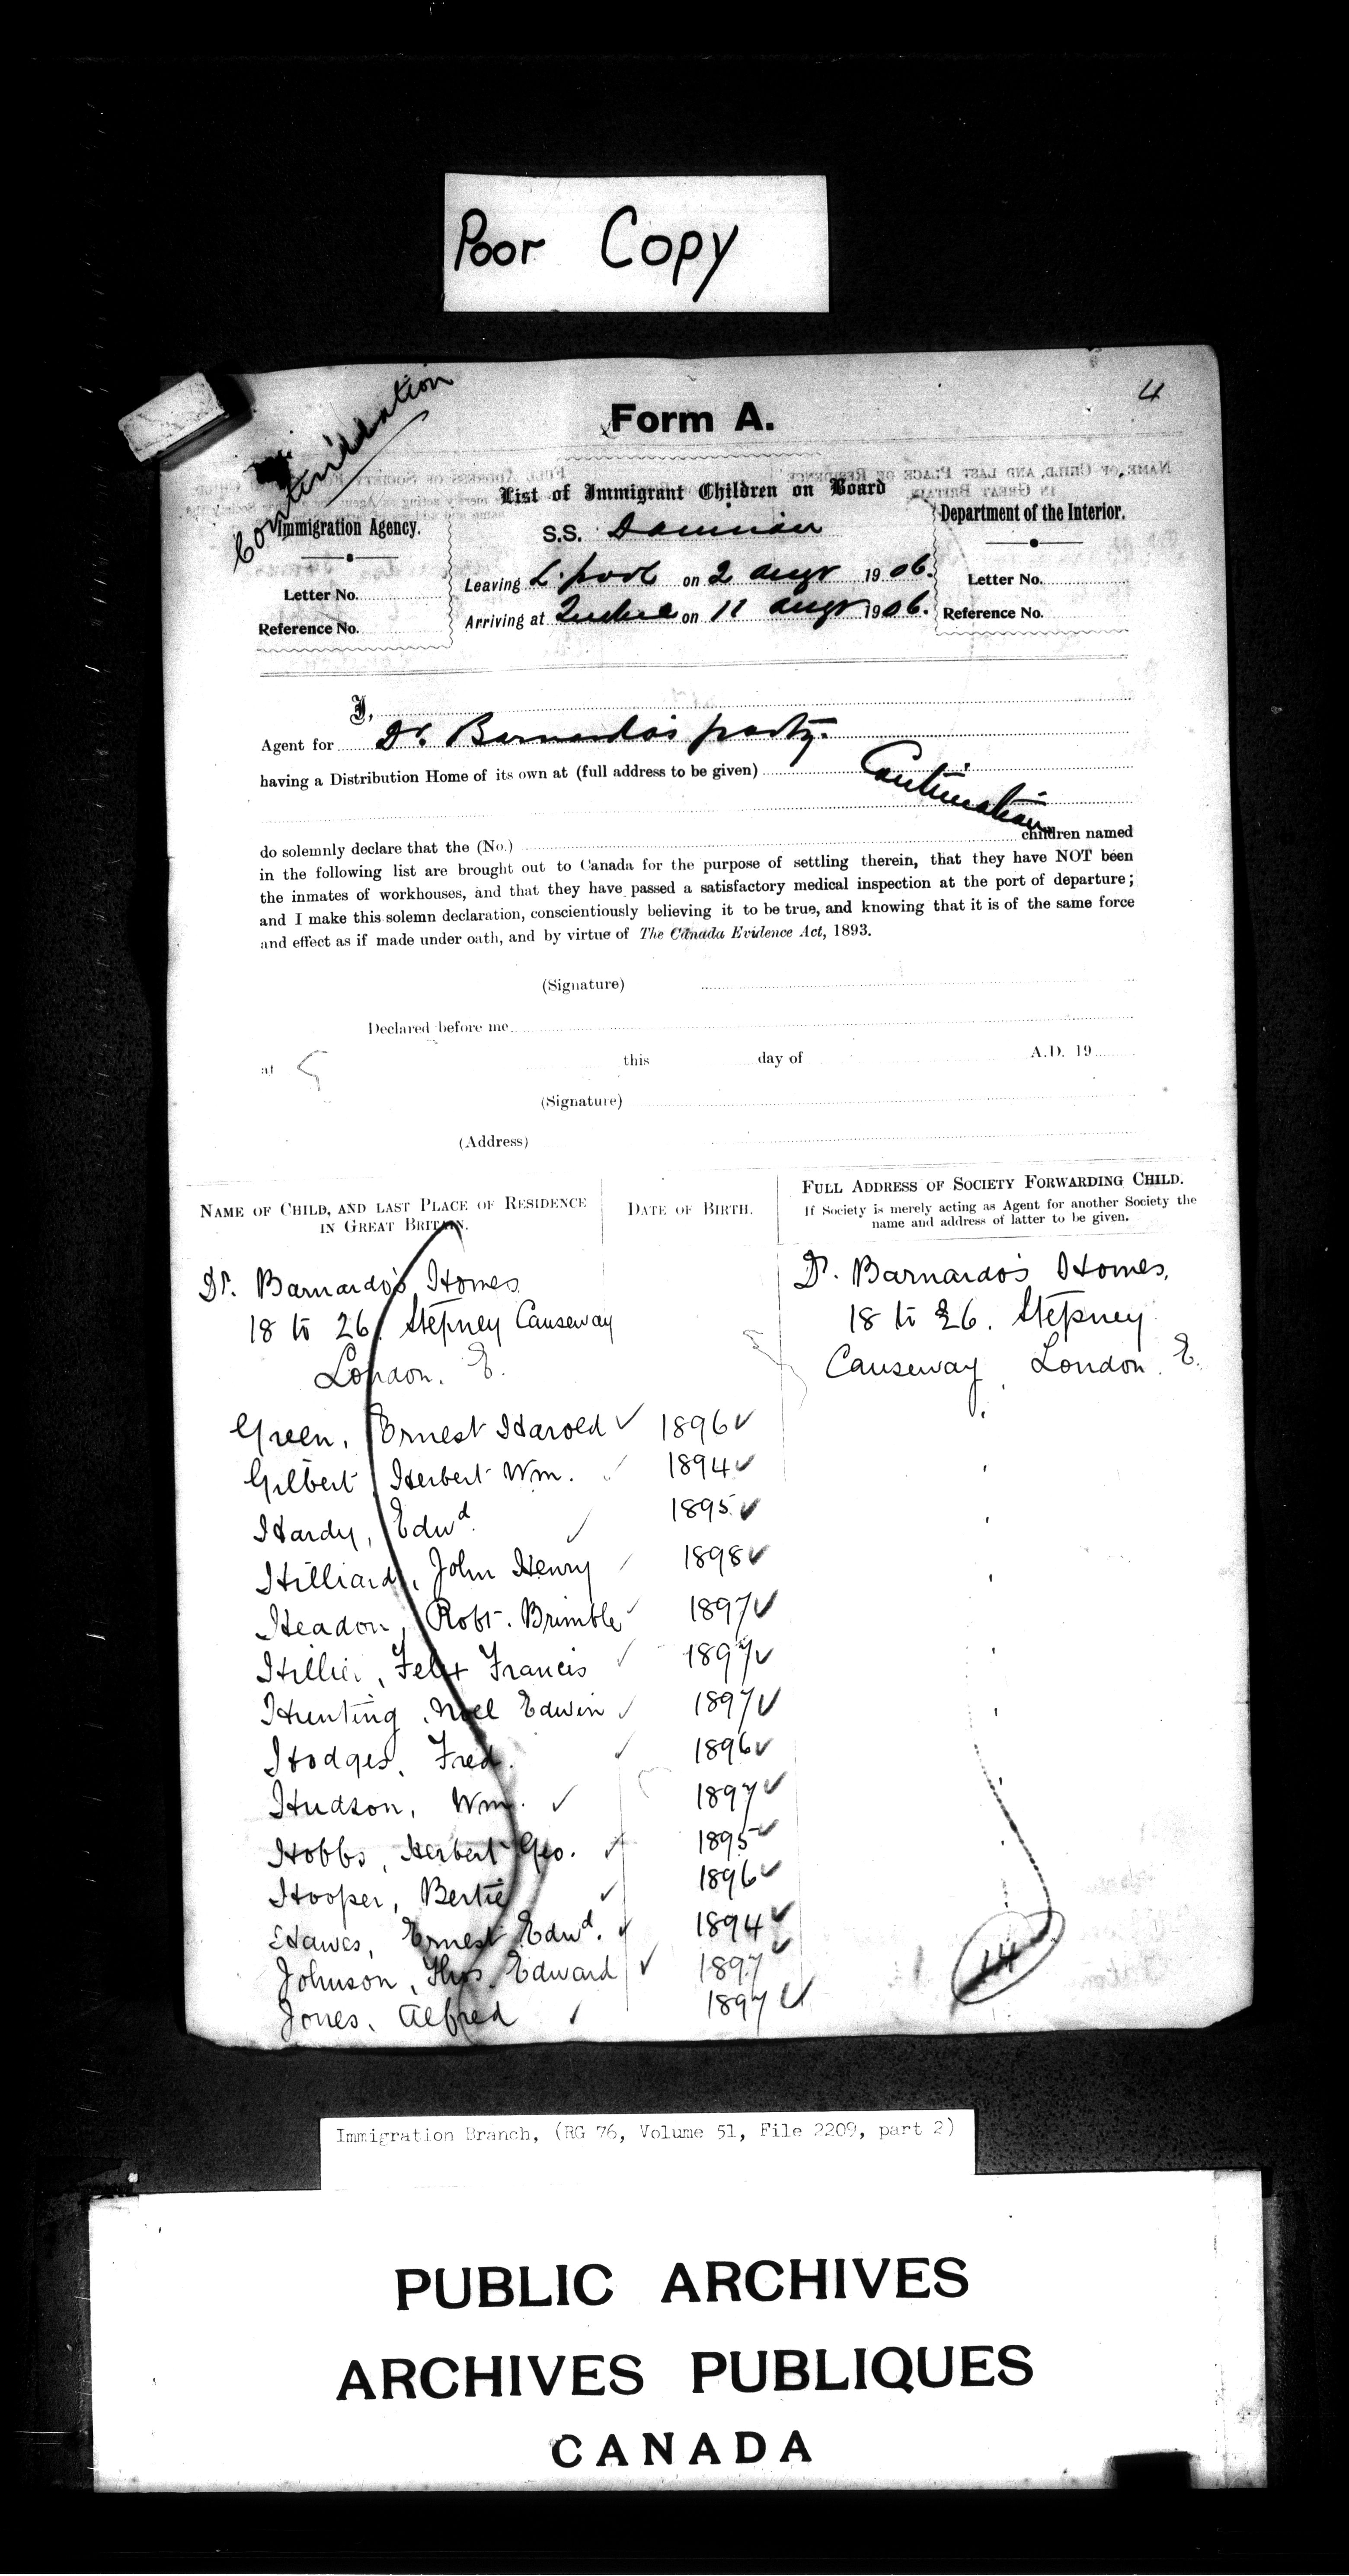 Poor Copy
4
Continuation
Form A.
List of Immigrant Children on Board
Immigration Agency.
S.S. Dominion
Department of the Interior.
Leaving L.pool on 2 augt 1906.
Letter No.
Letter No.
Arriving at Quebec on 11 augt 1906.
Reference No.
Reference No.
I,
Agent for Dr. Barnardo's party.
having a Distribution Home of its own at (full address to be given)
Continuation
do solemnly declare that the (No.) children named
in the following list are brought out to Canada for the purpose of settling therein, that they have NOT been
the inmates of workhouses, and that they have passed a satisfactory medical inspection at the port of departure;
and I make this solemn declaration, conscientiously believing it to be true, and knowing that it is of the same force
and effect as if made under oath, and by virtue of The Canada Evidence Act, 1893.
(Signature)
Declared before me
at this day of A.D. 19
(Signature)
(Address)
NAME OF CHILD, AND LAST PLACE OF RESIDENCE
IN GREAT BRITAIN.
DATE OF BIRTH.
FULL ADDRESS OF SOCIETY FORWARDING CHILD.
If Society is merely acting as Agent for another Society the
name and address of latter to be given.
Dr. Barnardo's Homes
18 to 26. Stepney Causeway
London. E.
Dr. Barnardo's Homes,
18 to 26. Stepney
Causeway London. E.
Green, Ernest Harold ✓ 1896 ✓
Gilbert Herbert Wm. ✓ 1894 ✓
Hardy, Edwd. ✓ 1895 ✓
Hilliard, John Henry ✓ 1898 ✓
Headon, Robt. Brimble ✓ 1897 ✓
Hillier, Felix Francis ✓ 1897 ✓
Hunting, Noel Edwin ✓ 1897 ✓
Hodges, Fred. ✓ 1896 ✓
Hudson, Wm. ✓ 1897 ✓
Hobbs, Herbert Geo. ✓ 1895 ✓
Hooper, Bertie ✓ 1896 ✓
Hawes, Ernest Edwd. ✓ 1894 ✓
Johnson, Thos. Edward ✓ 1897 ✓
Jones, Alfred ✓ 1897 ✓
14
Immigration Branch, (RG 76, Volume 51, File 2209, part 2)
PUBLIC ARCHIVES
ARCHIVES PUBLIQUES
CANADA